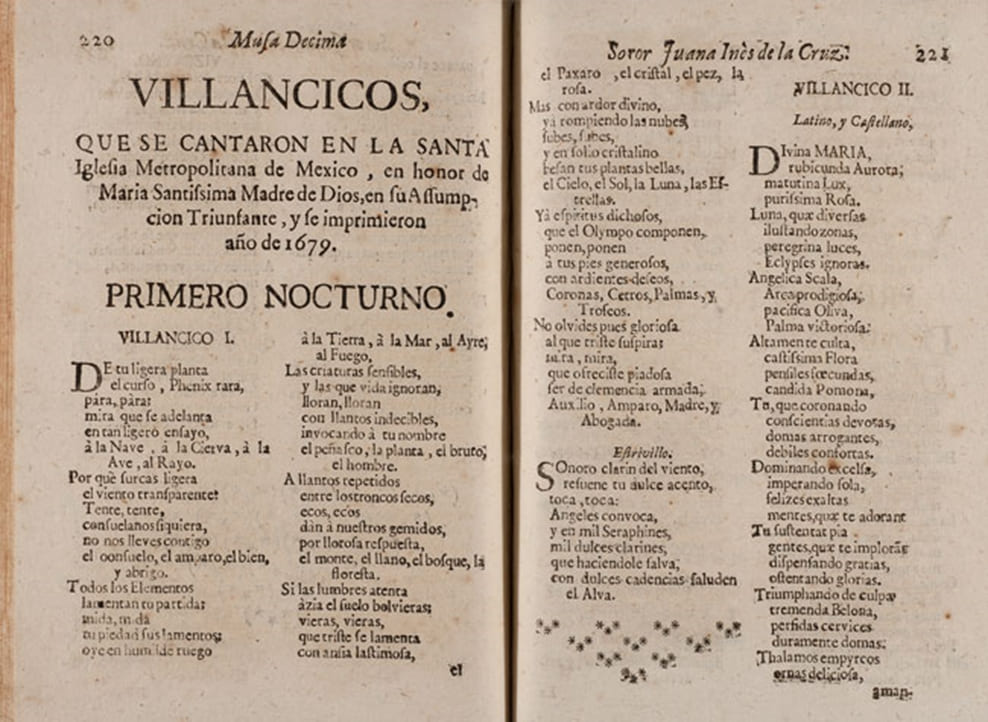 220
Musa Decima
VILLANCICOS,
QUE SE CANTARON EN LA SANTA
Iglesia Metropolitana de Mexico, en honor de
Maria Santissima Madre de Dios, en su Assump-
cion Triunfante, y se imprimieron
año de 1679.
PRIMERO NOCTURNO.
VILLANCICO I.
DE tu ligera planta
el curso, Phenix rara,
pára, pára:
mira que se adelanta
en tan ligerò ensayo,
à la Nave, à la Cierva, à la
Ave, al Rayo.
Por què surcas ligera
el viento transparente?
Tente, tente,
consuelanos siquiera,
no nos lleves contigo
el consuelo, el amparo, el bien,
y abrigo.
Todos los Elementos
lamentan tu partida:
mida, mida
tu piedad sus lamentos;
oye en humilde ruego
à la Tierra, à la Mar, al Ayre,
al Fuego,
Las criaturas sensibles,
y las que vida ignoran,
lloran, lloran
con llantos indecibles,
invocando à tu nombre
el peñasco, la planta, el bruto,
el hombre.
A llantos repetidos
entre los troncos secos,
ecos, ecos
dàn à nuestros gemidos,
por llorosa respuesta,
el monte, el llano, el bosque, la
floresta.
Si las lumbres atenta
àzia el suelo bolvieras;
vieras, vieras,
que triste se lamenta
con ansia lastimosa,
el
Soror Juana Inès de la Cruz.
221
el Paxaro, el cristal, el pez, la
rosa.
Mas con ardor divino,
yà rompiendo las nubes,
subes, subes,
y en solio cristalino
besan tus plantas bellas,
el Cielo, el Sol, la Luna, las Es-
trellas.
Yà espiritus dichosos,
que el Olympo componen,
ponen, ponen
à tus pies generosos,
con ardientes deseos,
Coronas, Cetros, Palmas, y
Trofeos.
No olvides pues gloriosa
al que triste suspira:
mira, mira,
que ofreciste piadosa
ser de clemencia armada,
Auxilio, Amparo, Madre, y
Abogada.
Estrivillo.
SOnoro clarin del viento,
resuene tu dulce acento,
toca, toca:
Angeles convoca,
y en mil Seraphines,
mil dulces clarines,
que haciendole salva,
con dulces cadencias saluden
el Alva.
VILLANCICO II.
Latino, y Castellano,
DIvina MARIA,
rubicunda Aurora,
matutina Lux,
purissima Rosa.
Luna, quæ diversas
ilustando zonas,
peregrina luces,
Eclypses ignoras.
Angelica Scala,
Arca prodigiosa,
pacifica Oliva,
Palma victoriosa:
Altamente culta,
castissima Flora
pensiles fœcundas,
candida Pomona,
Tu, que coronando
conscientias devotas,
domas arrogantes,
debiles confortas.
Dominando excelsa,
imperando sola,
felizes exaltas
mentes, quæ te adorant
Tu sustentat pia
gentes, quæ te implorãt
dispensando gratias,
ostentando glorias.
Triumphando de culpa
tremenda Belona,
perfidas cervices
duramente domas:
Thalamos empyreos
ornas deliciosa,
aman-